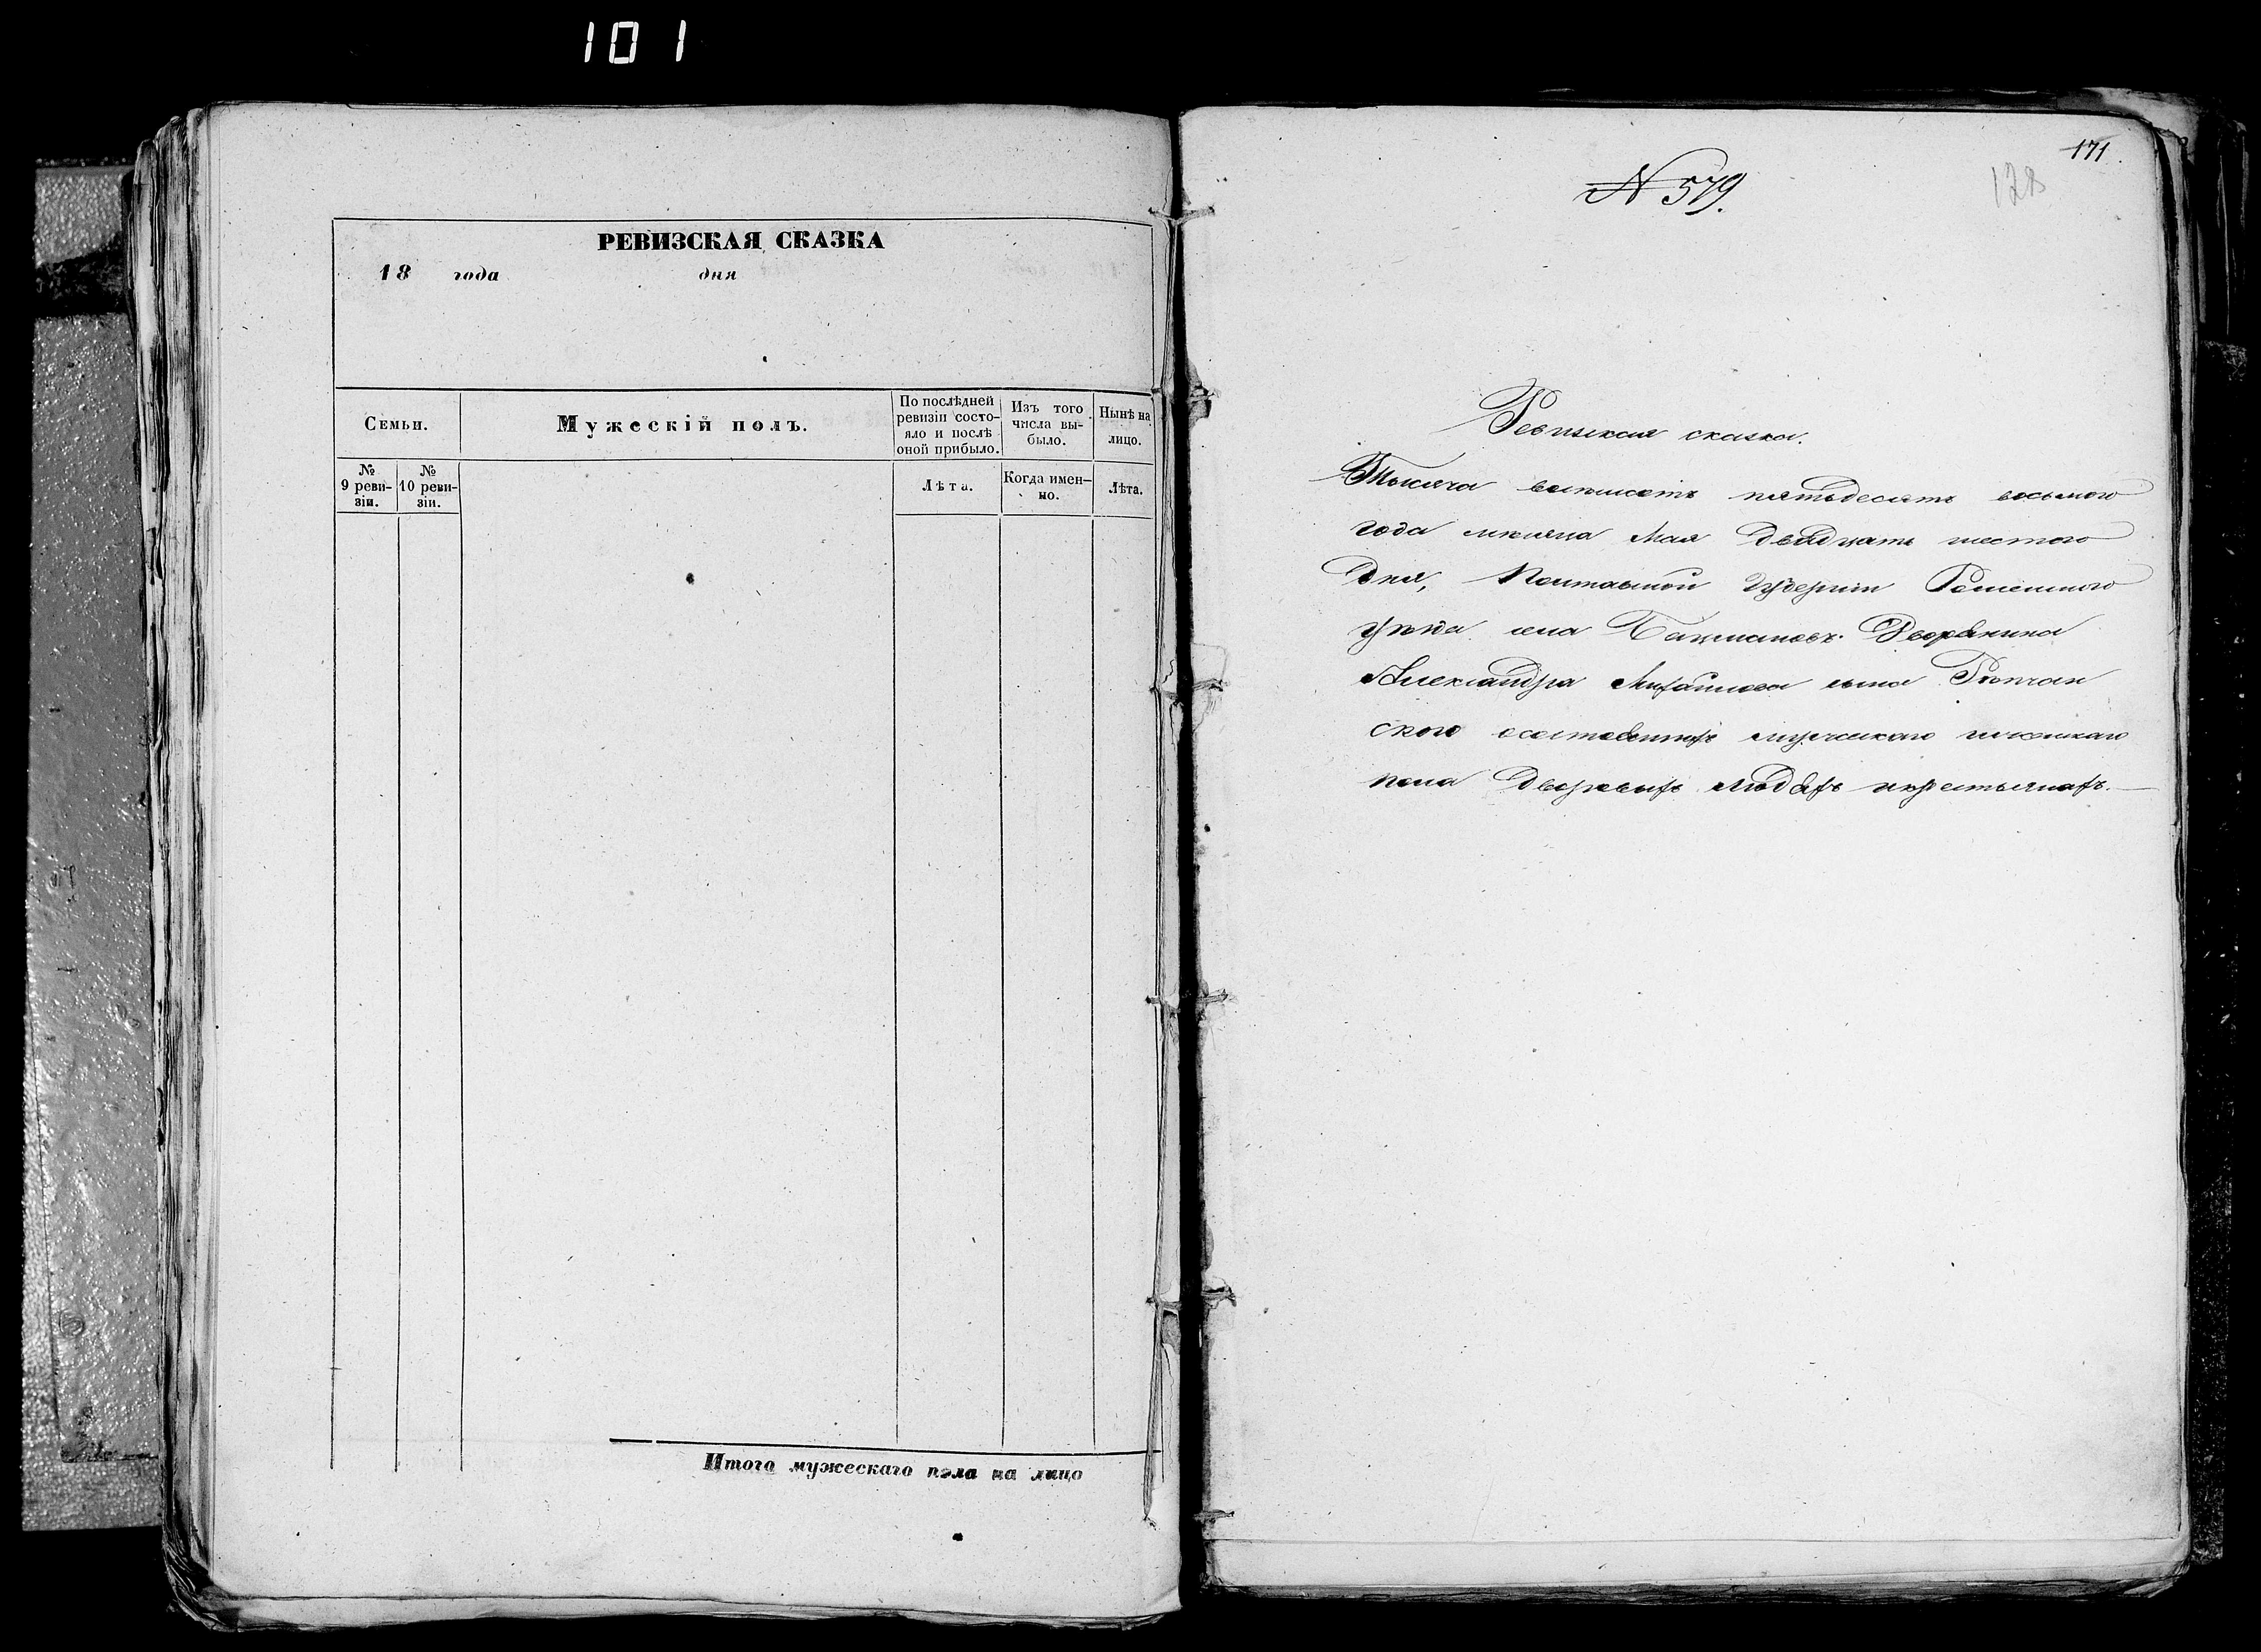 101
РЕВИЗСКАЯ СКАЗКА
18 года дня
Семьи.
Мужескій полъ.
По послѣдней
ревизіи состо-
яло и послѣ
оной прибыло.
Изъ того
числа вы-
было.
Нынѣ на
лицо.
№
9 реви-
зіи.
№
10 реви-
зіи.
Лѣта.
Когда имен-
но.
Лѣта.
Итого мужескаго пола на лицо
171.
128
№ 579.
Ревизская сказка.
Тысяча восемьсотъ пятьдесятъ восьмого
года мѣсяца Мая двадцать шестого
дня, Полтавской Губерніи Роменского
уѣзда села Бацмановъ Дворянина
Александра Михайлова сына
ского о состоящихъ мужескаго и женскаго
пола дворовыхъ людяхъ и крестьянахъ.